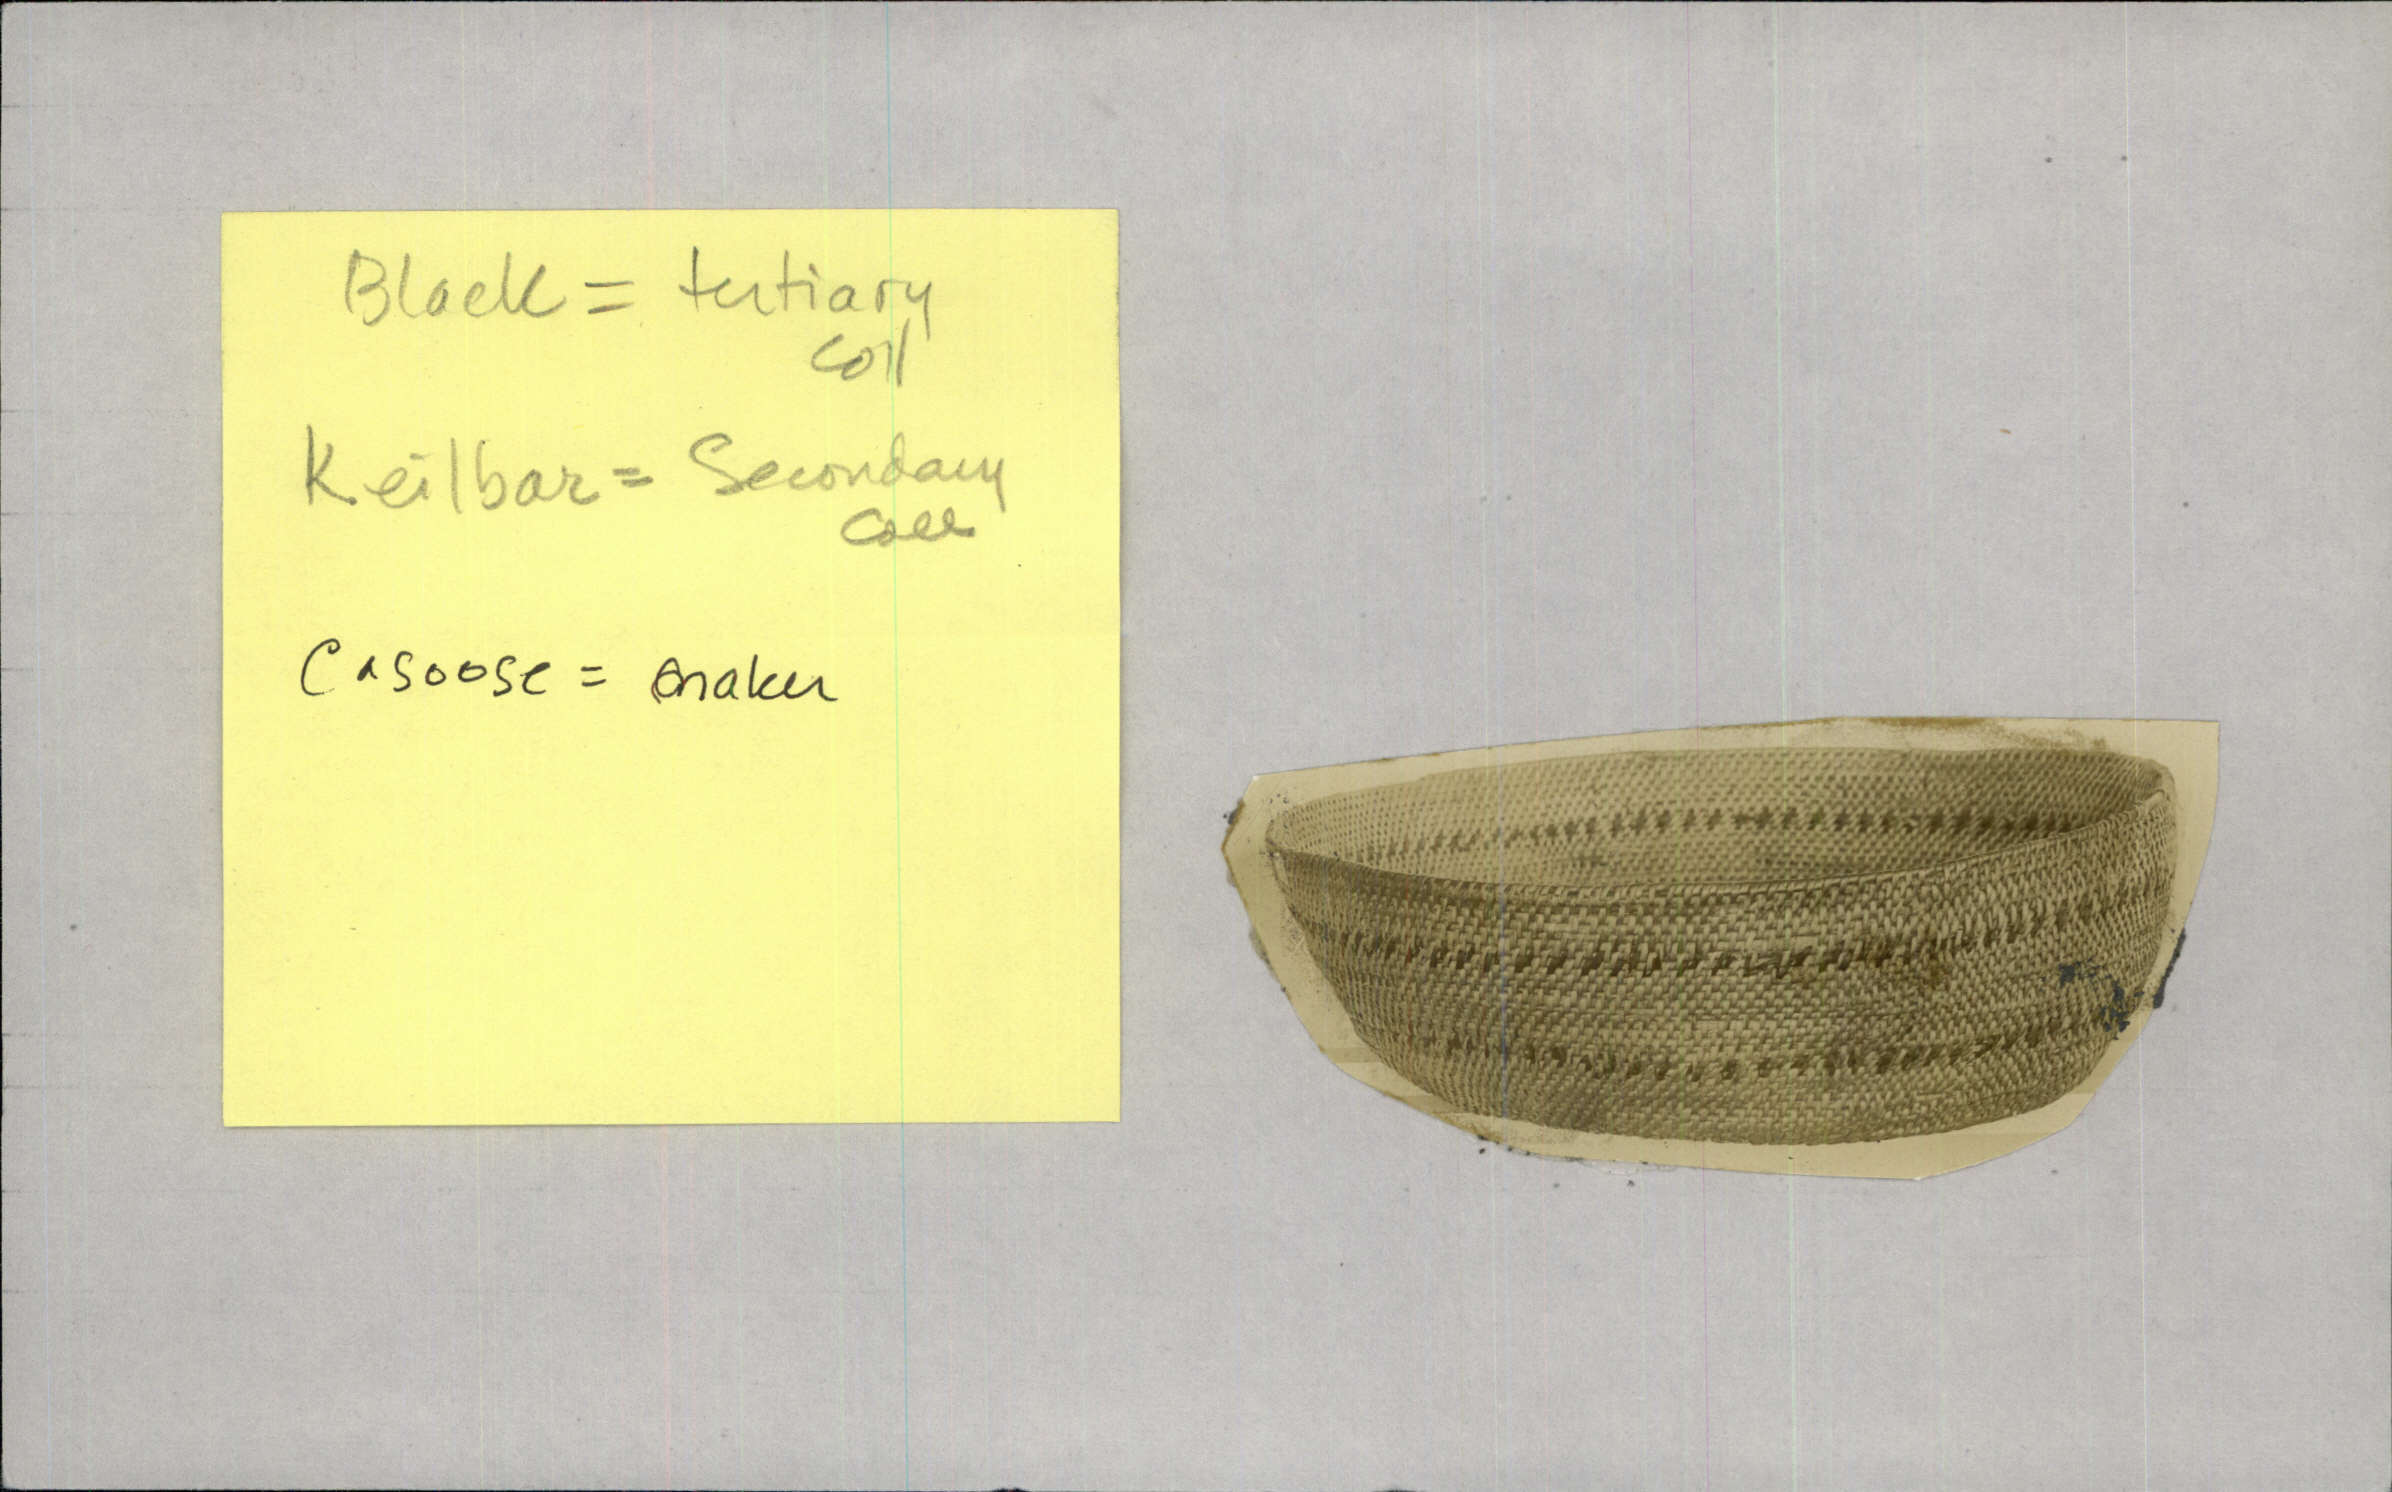 Black = tertiary
coll
Keilbar = Secondary
coll
Casoose = maker